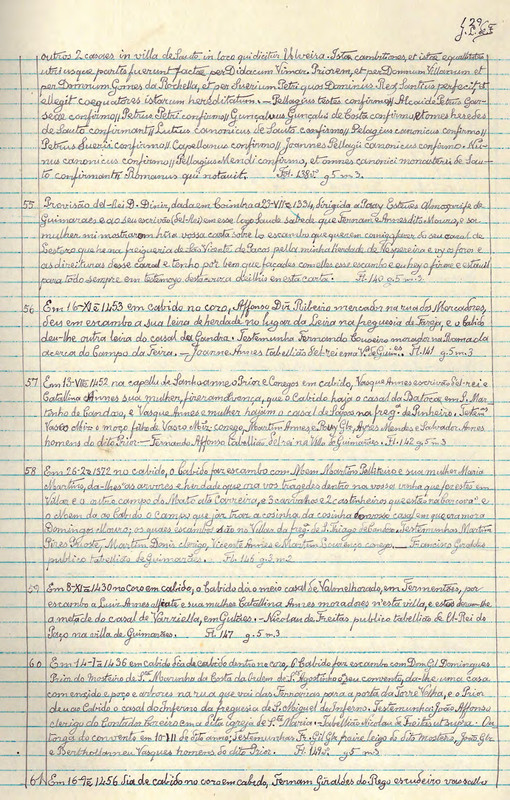 outros 2 casares in villa de Sauto in loco qui dicitur Ulveira. Istas cambitiones, et istas equalitates
utriusque partis fuerunt factæ per Didacum Vimar Priorem, et per Domnum Villanum et
per Domnum Gomes da Rochella, et per Suerium Petri quos Dominus Rex Santius perfecit, et
ellegit coequatores istarum hereditatum. — Pellagius testis confirmo // Alcaide Petrus Gar-
seae confirmo // Petrus Petri confirmo // Gunsalvus Gunsalvis de Costa confirmo, et omnes heredes
de Sauto confirmant // Lutius canonicus de Sauto confirmo // Pelagius canonicus confirmo //
Petrus Suerii confirmo // Capellanus confirmo // Joannes Pellagii canonicus confirmo. Nu-
nus canonicus confirmo // Pellagius Mendi confirmo, et omnes canonici monasterii de Sau-
to confirmant. Romanus qui notuit. Fl. 138 g 5 m 3.
55 Provisão del-Rei D. Diniz, dada em Coimbra a 23-VII-1334, dirigida a Paay Esteves almoxarife de
Guimaraes e ao seu escrivão (del-Rei) em esse logo saude sabede que Fernam Annes dito Mouro, e sa
mulher mi mostrarom hũa vossa carta sobre lo escambo que querem comigo fazer do seu casal de
Sestoro que he na freigueria de São Vicente de Paço pella minha herdade de Vespereira e vy o foro e
as direituras desse casal e tenho por bem que façades com elles esse escambo e eu hey o firme e estavil
para todo sempre em testemoyo desto Fl. 140 g 5 m 3.
56 Em 16-XI-1453 em cabido no coro, Affonso Diz Ribeiro mercador na rua dos Mercadores,
deu em escambo a sua leira de herdade no lugar da Leira na freguesia de Fareja, e o Cabido
deu-lhe outra leira do casal da Gandra. Testemunha Fernando Louseiro morador na Ramada
acerca do Campo da Feira. — Joanne Annes tabellião del-rei em Vª de Guim.es Fl. 141 g 5 m 3
57 Em 15-VIII-1452 na capella de Santoanne o Prior e Conegos em cabido, Vasque Annes escrivão del-rei e
Catallina Annes sua mulher, fizeram avença, que o Cabido haja o casal da Batoca em S. Mar-
tinho de Candoso, e Vasque Annes e mulher hajam o casal de Lagoas na freg.ª de Pinheiro. Testem.as
Vasco Miz o moço filho de Vasco Miz conego, Martim Annes e Ayres Mendes e Salvador Annes
homens do dito Prior — Fernando Affonso tabellião del-rei na Villa de Guimarães. Fl. 142 g 5 m 3
58 Em 26-2ª-1372 no cabido, o Cabido faz escambo com Moem Martins Pelliteiro e sua mulher Maria
Martins, da-lhes as arvores e herdade que ora vos tragedes dentro na vossa vinha que foi estes em
Villar, e o outro campo do Mato ata Carreira, e 3 carvalhos e 2 castinheiros que estão na devesa e
o Moem da ao Cabido o Campo que jaz traz a cosinha da cosinha do nosso casal em que ora mora
Domingos Mouro; os quaes escambos são no Villar da freg.ª de S. Thiago de Candoso. Testemunhas Martim
Pires Picote, Martim Doniz clerigo, Vicente Annes e Martim Lourenço conego. — Francisco Giraldes
publico tabellião de Guimarães. Fl. 146 g 3 m 2
59 Em 8-XI-1430 no coro em cabido, o Cabido dá o meio casal de Valmelhorado, em Fermentões, por
escambo a Luiz Annes alfaiate e sua mulher Catallina Annes moradores n'esta villa, e estes deram-lhe
a metade do casal de Varziella, em Gulfres. — Nicolau de Freitas publico tabellião de El-Rei do
Paço na villa de Guimarães. Fl. 147 g. 5 m. 3
60 Em 14-1º-1436 em cabido dia de cabido dentro no coro, o Cabido faz escambo com Dom Gil Domingues
Prior do Mosteiro de S.ta Marinha da Costa da ordem de S.to Agostinho e seu convento, da-lhe uma casa
com enxido e poço e arvores na rua que vai das Ferrarias para a porta da Torre Velha, e o Prior
deu ao Cabido o casal do Inferno da freguesia de S. Miguel do Inferno. Testemunhas: João Affonso
clerigo do Canto da Coreixo em a dita egreja de S.ta Maria. - Tabellião Nicolau de Freitas ut supra. Ou-
torga do convento em 10-II do dito anno; Testemunhas Fr. Gil Glz fraire leigo do dito mosteiro, João Glz
e Berthollameu Vasques homens do dito Prior. Fl. 149 g 5 m 3
61 Em 16-1º-1456 dia de cabido no coro em cabido, Fernam Giraldes do Rego escudeiro vassallo